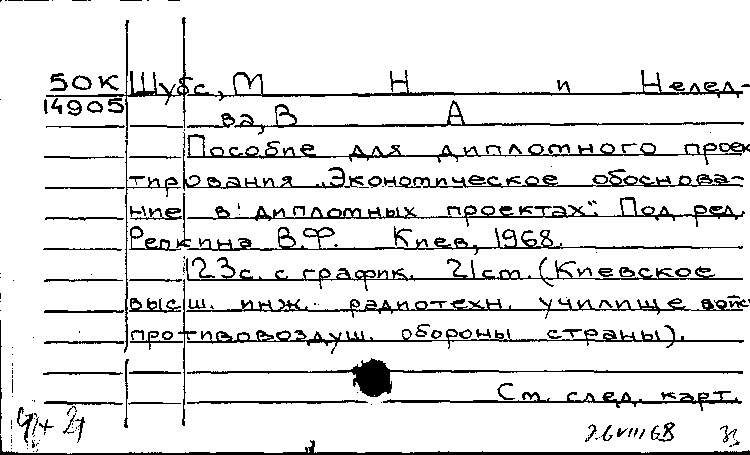 50К Шубс, М Н и Нелед-
14905 ва, В А
Пособие для дипломного проек
тирования „Экономическое обоснова-
ние в дипломных проектах". Под ред.
Репкина В.Ф. Киев, 1968.
123с. с график. 21см. (Киевское
высш. инж. радиотехн. училище войс
противовоздуш. обороны страны).
См. след. карт.
26 VIII 68